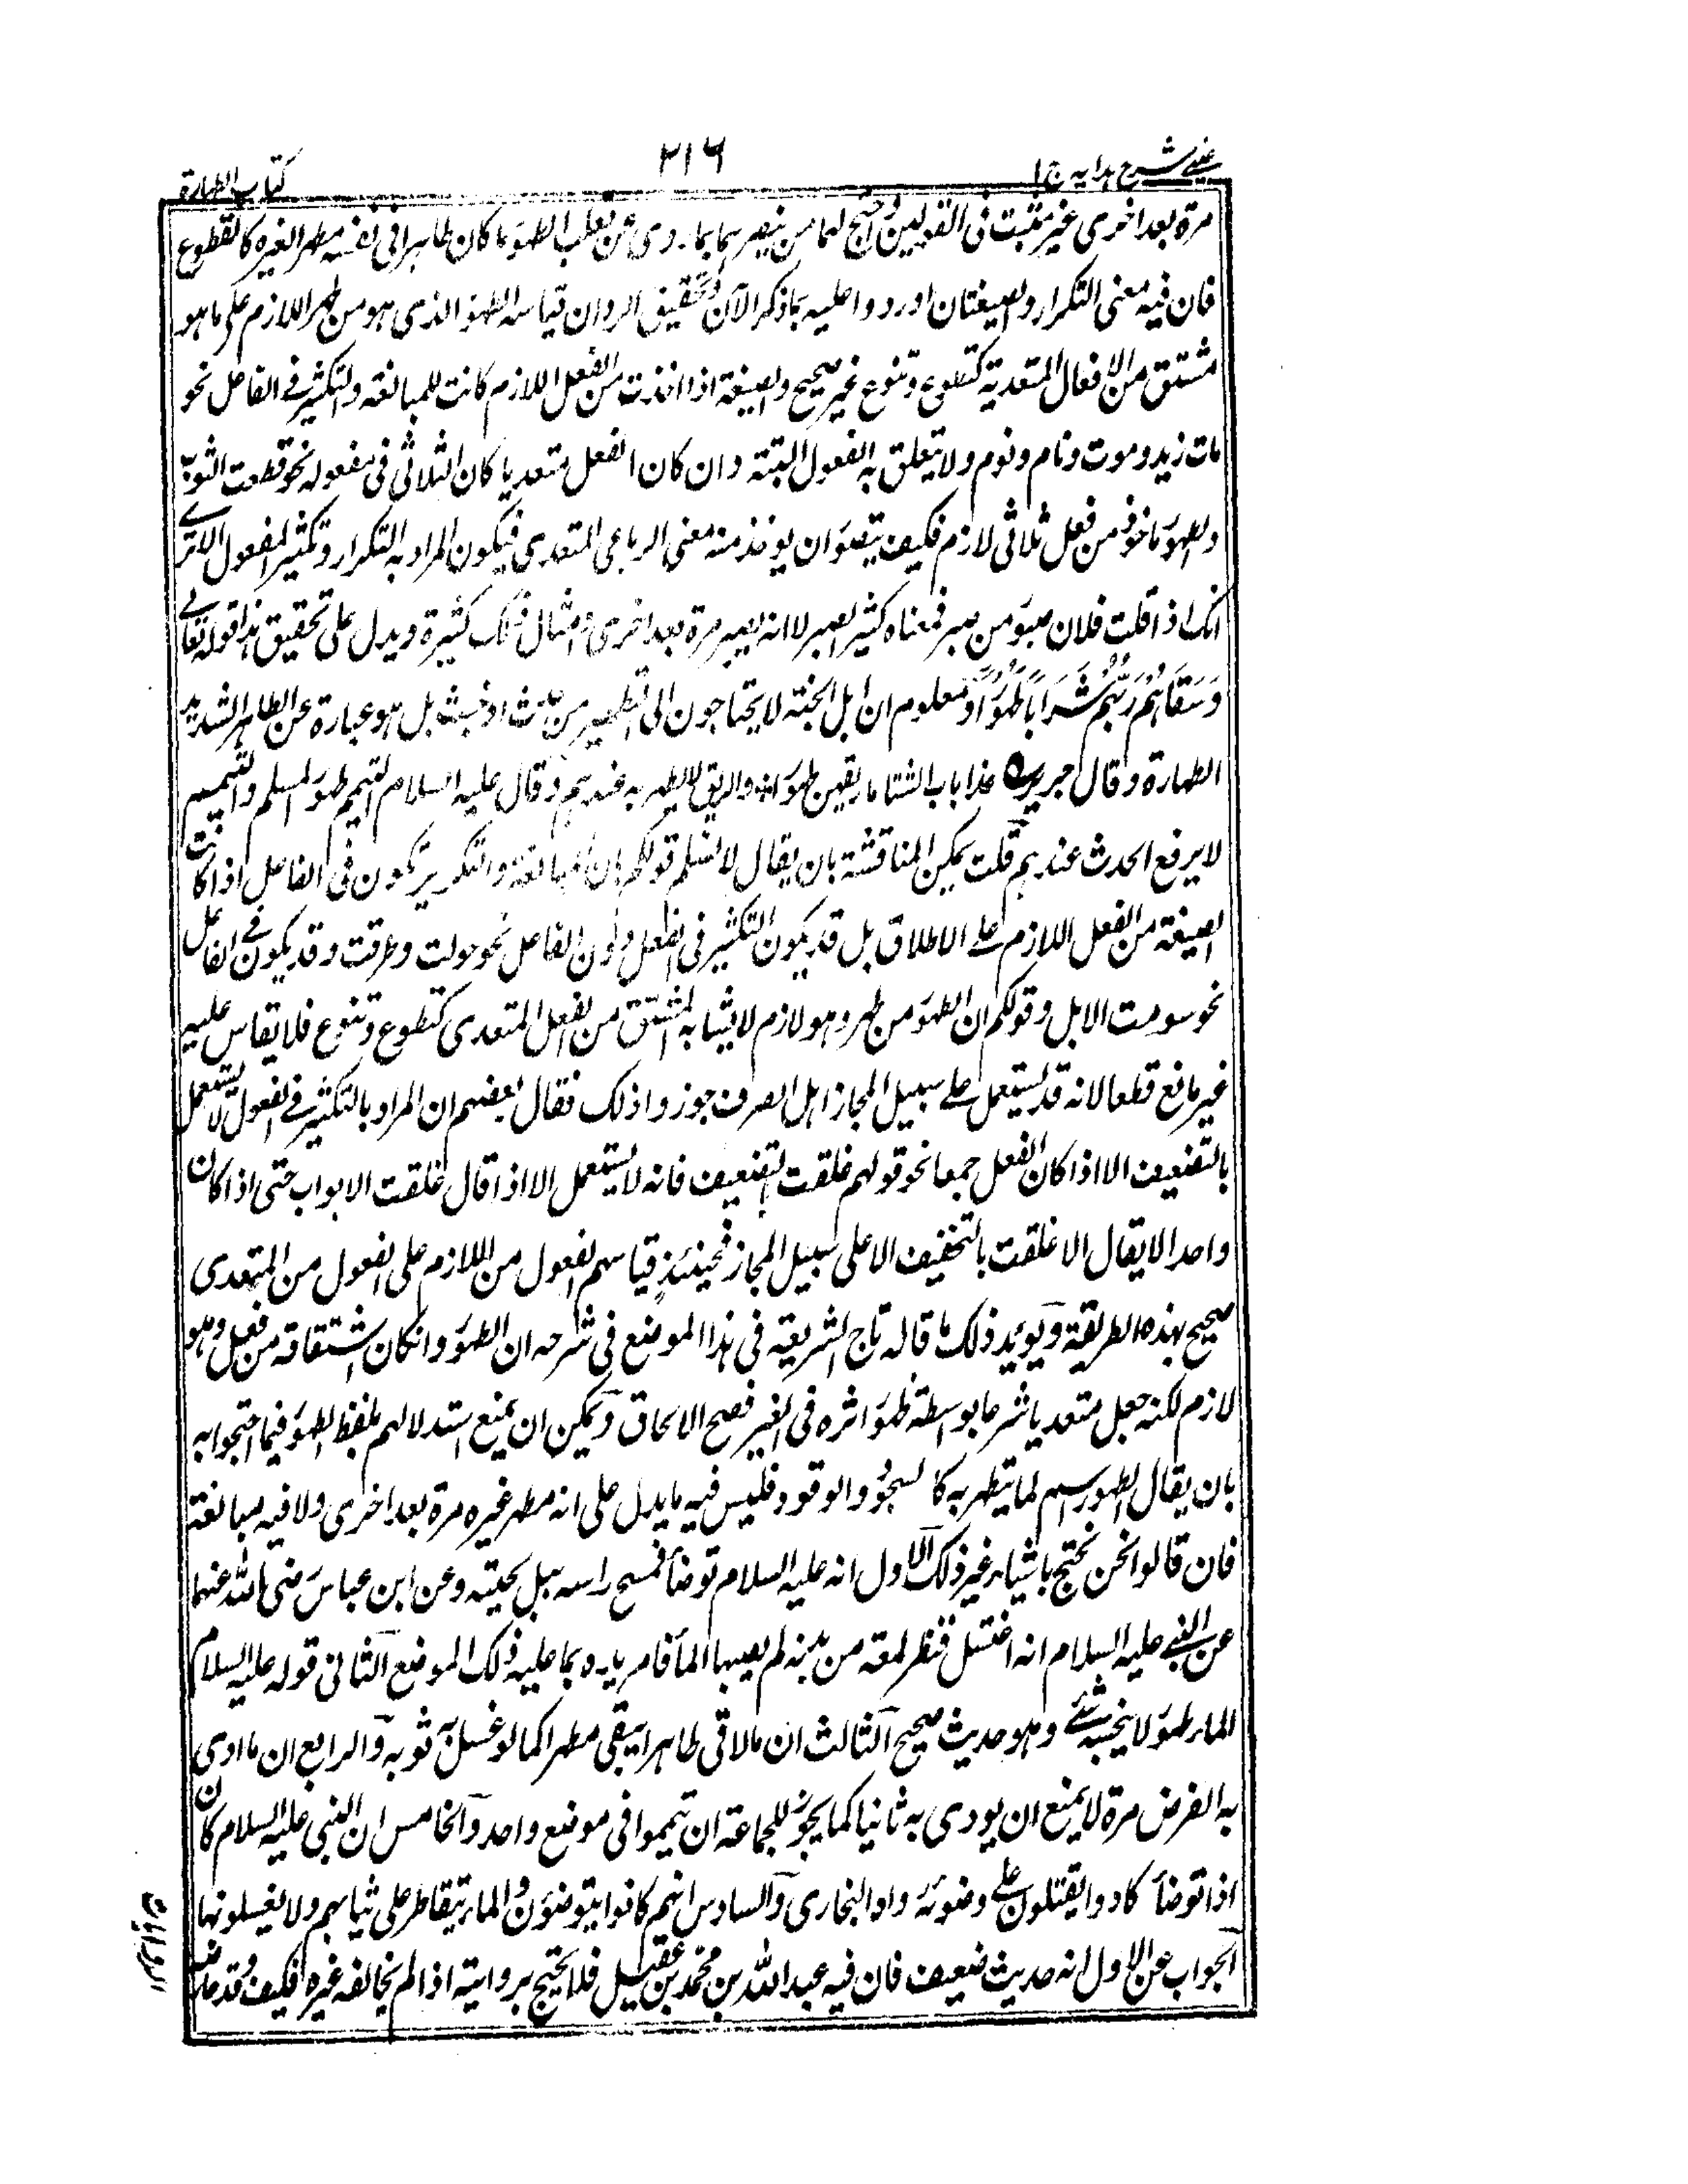 عينى شرح هدايه ج ١
٢١٦
كتاب الطهارة
مرة بعد اخرى غير مثبت فى القولين واحتج لهما من ينصرهما بما روى عن ثعلب الطهور ما كان طاهرا فى نفسه مطهرا لغيره كالقطوع
فان فيه معنى التكرار والصيغتان اوردوا عليه بما ذكر الآن وتحقيق الرد ان قياسه الطهور الذى هو من طهر اللازم على ما هو
مشتق من الافعال المتعدية كقطوع وتنوع غير صحيح والصيغة اذا اخذت من الفعل اللازم كانت للمبالغة والتكثير فى الفاعل نحو
مات زيد وموت ونام ونوم ولا يتعلق به المفعول البتة وان كان الفعل متعديا كان الثلاثى فى مفعوله نحو قطعت الثوب
والطهور ماخوذ من فعل ثلاثى لازم فكيف يتصور ان يوخذ منه معنى الرباعى المتعدى فيكون المراد به التكرار وتكثير المفعول الا ترى
انك اذا قلت فلان صبور من صبر فمعناه كثير الصبر لا انه يصبر مرة بعد اخرى وامثال ذلك كثيرة ويدل على تحقيق هذا قوله تعالى
وَسَقَاهُمْ رَبُّهُمْ شَرَابًا طَهُورًا ومعلوم ان اهل الجنة لا يحتاجون الى التطهير من حدث او خبث بل هو عبارة عن الطاهر الشديد
الطهارة وقال جرير عذاب الثنايا ريقهن طهور والريق لا يطهر به عندهم وقال عليه السلام التيمم طهور المسلم والتيمم
لا يرفع الحدث عندهم قلت يمكن المناقشة بان يقال لا نسلم قولكم ان المبالغة والتكرير يكون فى الفاعل اذا كانت
الصيغة من الفعل اللازم على الاطلاق بل قد يكون التكثير فى الفعل دون الفاعل نحو حولت وطرقت وقد يكون فى الفاعل
نحو سومت الابل وقولكم ان الطهور من طهر وهو لازم لا يشابه المشتق من الفعل المتعدى كقطوع وتنوع فلا يقاس عليه
غير مانع قطعا لانه قد يستعمل على سبيل المجاز اهل الصرف جوزوا ذلك فقال بعضهم ان المراد بالتكثير فى المفعول لا يستعمل
بالتضعيف الا اذا كان الفعل جمعا نحو قولهم غلقت بالتضعيف فانه لا يستعمل الا اذا قال غلقت الابواب حتى اذا كان
واحدا لا يقال الا غلقت بالتخفيف الا على سبيل المجاز فحينئذٍ قياسهم الفعول من اللازم على الفعول من المتعدى
صحيح بهذه الطريقة ويويد ذلك ما قاله تاج الشريعة فى هذا الموضع فى شرحه ان الطهور وان كان اشتقاقه من فعل وهو
لازم لكنه جعل متعديا شرعا بواسطة ظهور اثره فى الغير فصح الالحاق ويمكن ان يمنع استدلالهم بلفظ الطهور فيما احتجوا به
بان يقال الطهور اسم لما يتطهر به كالسحور والوقود فليس فيه ما يدل على انه مطهر غيره مرة بعد اخرى ولا فيه مبالغة
فان قالوا نحن نحتج باشياء غير ذلك الاول انه عليه السلام توضأ فمسح راسه ببل لحيته وعن ابن عباس رضى الله عنهما
عن النبى عليه السلام انه اغتسل فنظر لمعة من بدنه لم يصبها الماء فامر يده بما عليه ذلك الموضع الثانى قوله عليه السلام
الماء طهور لا ينجسه شئ وهو حديث صحيح الثالث ان ما لاقى طاهرا يبقى مطهرا كما لو غسل به ثوبه والرابع ان ما ادى
به الفرض مرة لا يمنع ان يودى به ثانيا كما يجوز للجماعة ان تيمموا فى موضع واحد والخامس ان النبى عليه السلام كان
اذا توضأ كادوا يقتلون على وضوئه رواه البخارى والسادس انهم كانوا يتوضؤن والماء يتقاطر على ثيابهم ولا يغسلونها
الجواب عن الاول انه حديث ضعيف فان فيه عبد الله بن محمد بن عقيل فلا يحتج بروايته اذا لم يخالفه غيره فكيف وقد